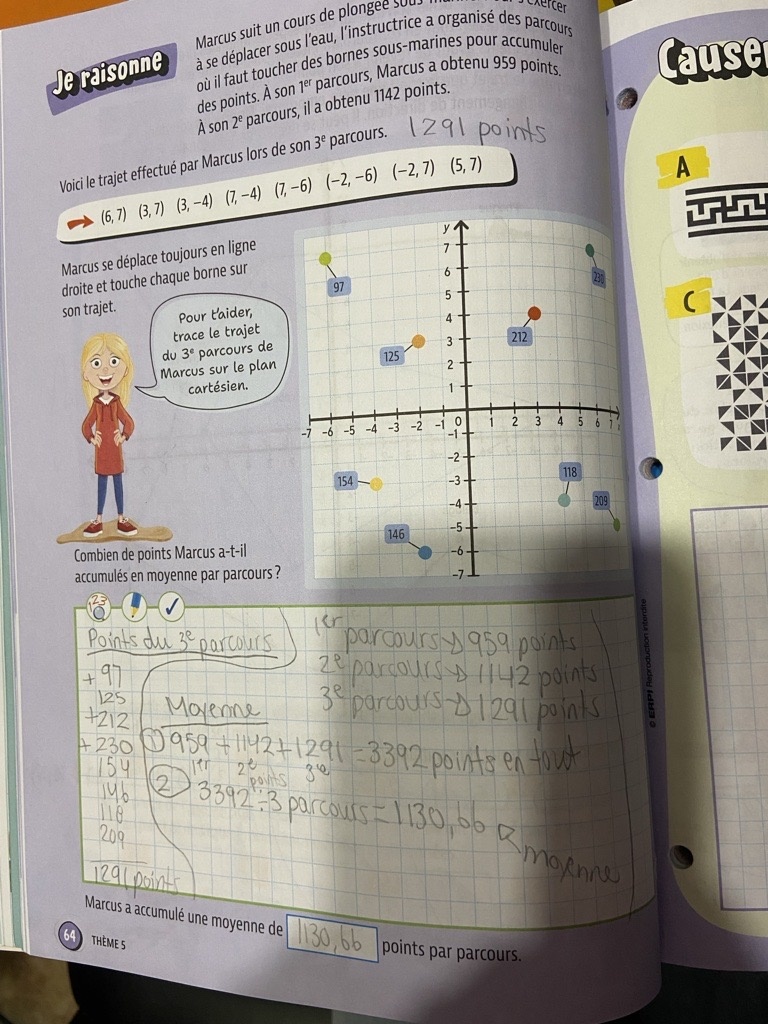 Je raisonne
Marcus suit un cours de plongée sous
à se déplacer sous l'eau, l'instructrice a organisé des parcours
où il faut toucher des bornes sous-marines pour accumuler
des points. À son 1er parcours, Marcus a obtenu 959 points.
À son 2e parcours, il a obtenu 1142 points.
1291 points
Voici le trajet effectué par Marcus lors de son 3e parcours.
(6, 7) (3, 7) (3, −4) (7, −4) (7, −6) (−2, −6) (−2, 7) (5, 7)
Marcus se déplace toujours en ligne
droite et touche chaque borne sur
son trajet.
Pour t'aider,
trace le trajet
du 3e parcours de
Marcus sur le plan
cartésien.
y
7
6
5
4
3
2
1
-7 -6 -5 -4 -3 -2 -1 0 1 2 3 4 5 6 7
-1
-2
-3
-4
-5
-6
-7
97
230
212
125
154
118
209
146
Combien de points Marcus a-t-il
accumulés en moyenne par parcours ?
123
Points du 3e parcours
+97
125
+212
+230
154
146
118
209
1291 points
1er parcours → 959 points
2e parcours → 1142 points
3e parcours → 1291 points
Moyenne
① 959 + 1142 + 1291 = 3392 points en tout
1er 2e 3e
points
② 3392 ÷ 3 parcours = 1130,66
moyenne
Marcus a accumulé une moyenne de 1130,66 points par parcours.
64 THÈME 5
© ERPI Reproduction interdite
Cause
A
C